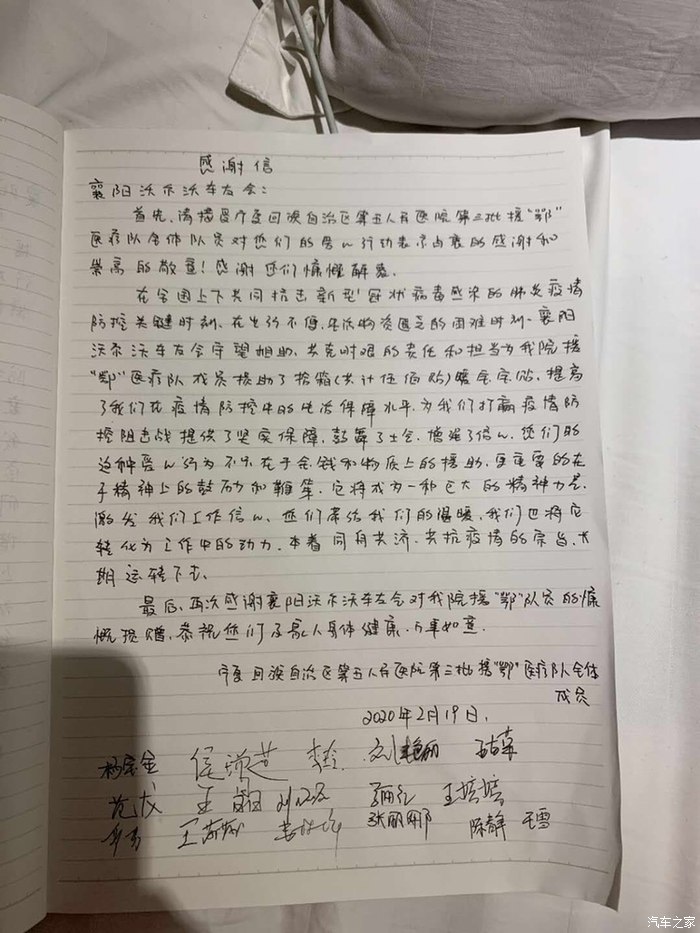 感谢信
襄阳沃尔沃车友会:
首先,请接受宁夏回族自治区第五人民医院第三批援"鄂"
医疗队全体队员对您们的爱心行动表示由衷的感谢和
崇高的敬意!感谢您们慷慨解囊。
在全国上下共同抗击新型冠状病毒感染的肺炎疫情
防控关键时刻,在出行不便,生活物资匮乏的困难时刻,襄阳
沃尔沃车友会守望相助、共克时艰的责任和担当为我院援
"鄂"医疗队成员援助了拾箱(共计伍佰贴)暖宝宝贴,提高
了我们在疫情防控中的生活保障水平,为我们打赢疫情防
控阻击战提供了坚实保障,鼓舞了士气,增强了信心,您们的
这种爱心行为不只在于金钱和物质上的援助,更重要的在
于精神上的鼓励和鞭策,它将成为一种巨大的精神力量,
激发我们工作信心,您们带给我们的温暖,我们也将它
转化为工作中的动力,本着同舟共济,共抗疫情的宗旨,长
期运转下去。
最后,再次感谢襄阳沃尔沃车友会对我院援"鄂"队员的慷
慨捐赠,恭祝您们及家人身体健康,万事如意.
宁夏回族自治区第五人民医院第三批援"鄂"医疗队全体
成员
2020年2月19日.
王培培
张丽娜 陈静 王雪
汽车之家